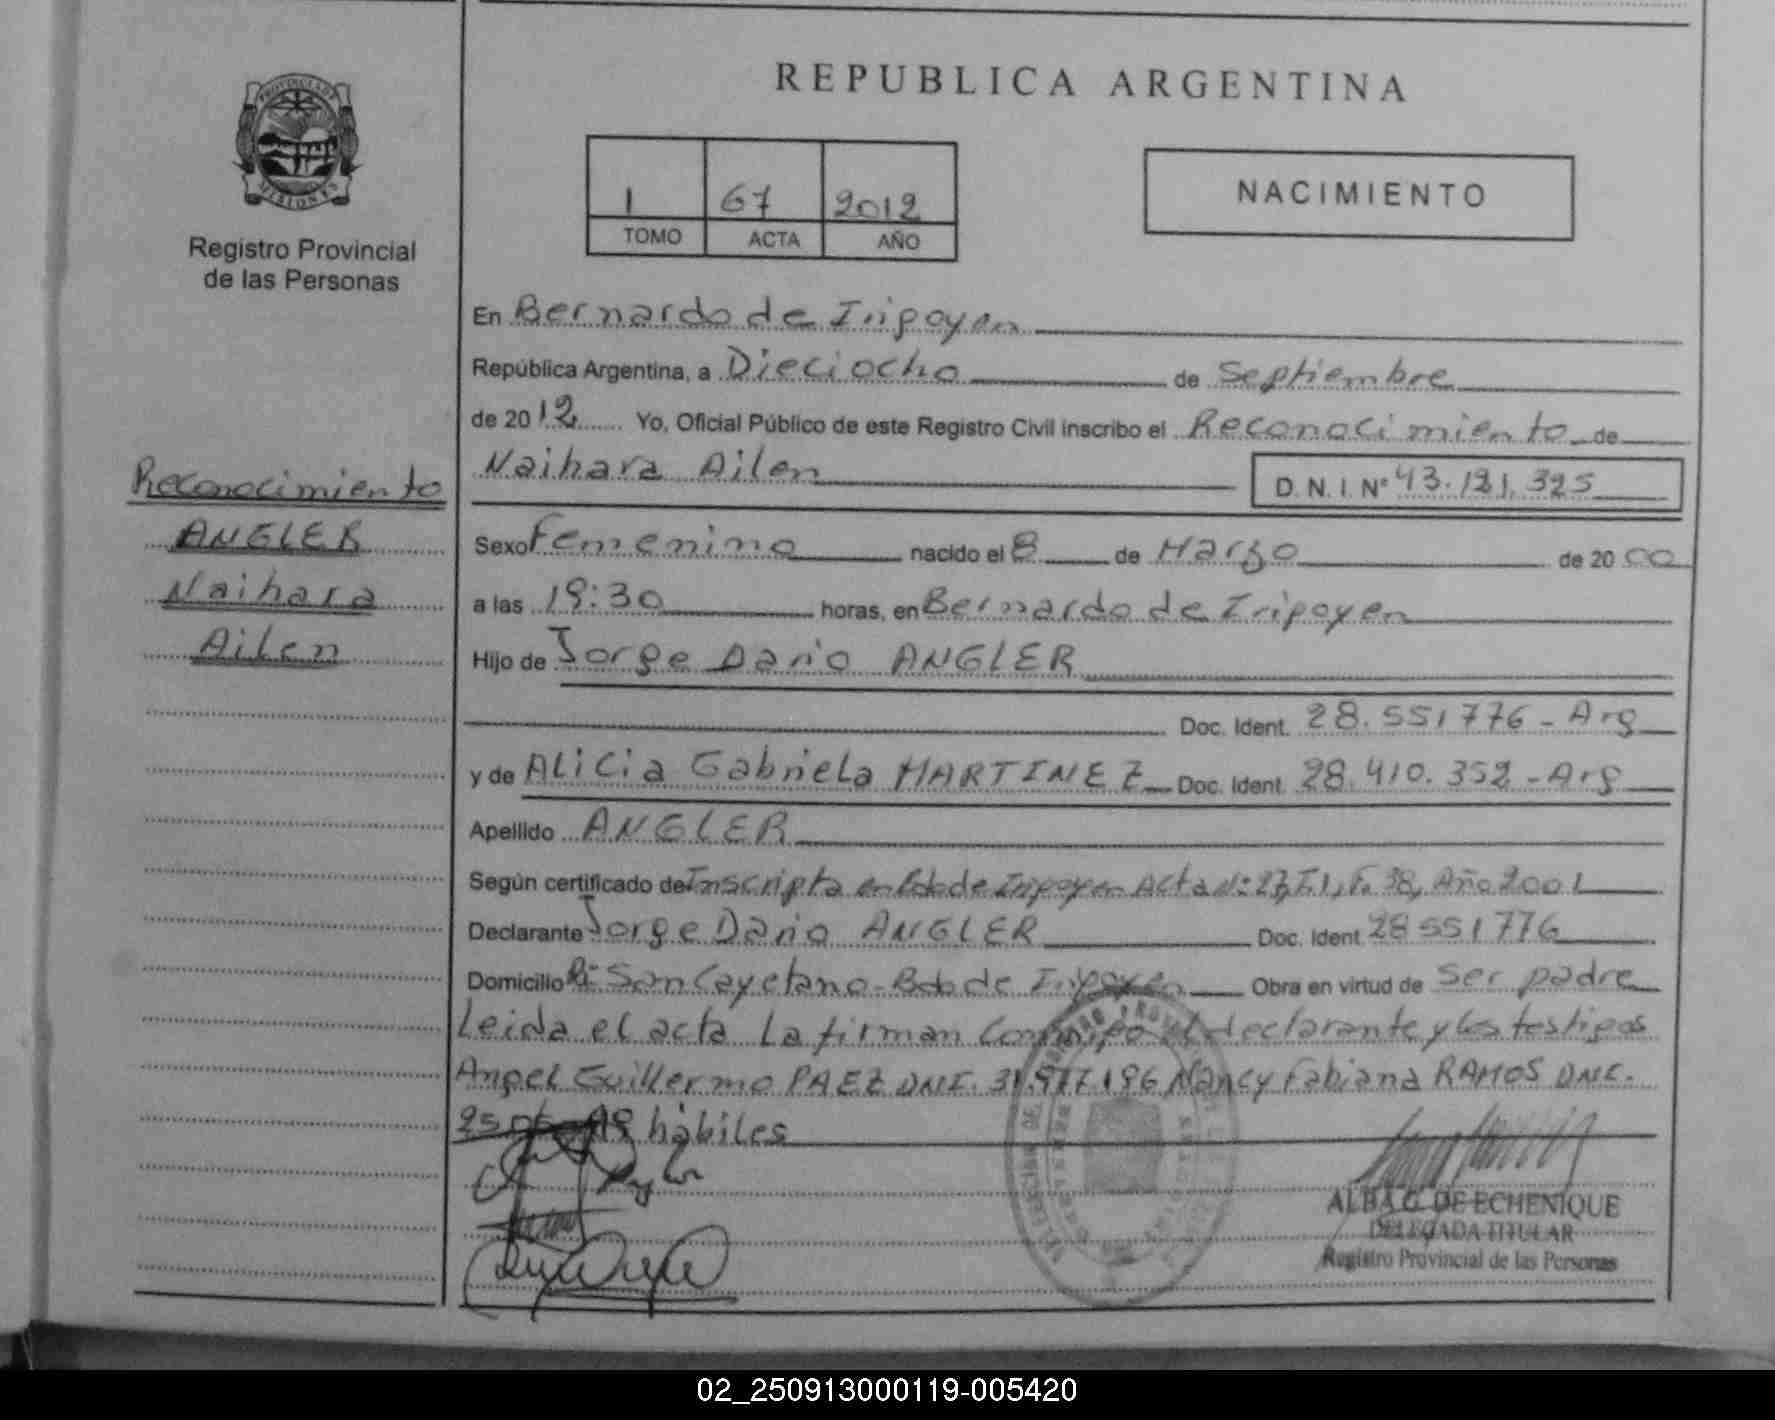 REPUBLICA ARGENTINA
PROVINCIA DE
MISIONES
Registro Provincial
de las Personas
1 67 2012
TOMO ACTA AÑO
NACIMIENTO
En Bernardo de Irigoyen
República Argentina, a Dieciocho de Septiembre
de 2012 Yo, Oficial Público de este Registro Civil inscribo el Reconocimiento de
Naihara Ailen D.N.I. Nº 43.121.325
Reconocimiento
ANGLER
Naihara
Ailen
Sexo Femenino nacido el 8 de Marzo de 2000
a las 19:30 horas, en Bernardo de Irigoyen
Hijo de Jorge Dario ANGLER
Doc. Ident. 28.551776 - Arg
y de Alicia Gabriela MARTINEZ Doc. Ident. 28.410.352 - Arg
Apellido ANGLER
Según certificado de Inscripta en Bdo de Irigoyen Acta Nº 27, T.1, F. 38, Año 2001
Declarante Jorge Dario ANGLER Doc. Ident. 28551776
Domicilio Bº San Cayetano - Bdo de Irigoyen Obra en virtud de Ser padre
Leida el acta La firman Conmigo el declarante y los testigos
Angel Guillermo PAEZ DNI. 31.977.196 Nancy Fabiana RAMOS DNI.
hábiles
ALBA G. DE ECHENIQUE
DELEGADA TITULAR
Registro Provincial de las Personas
02_250913000119-005420